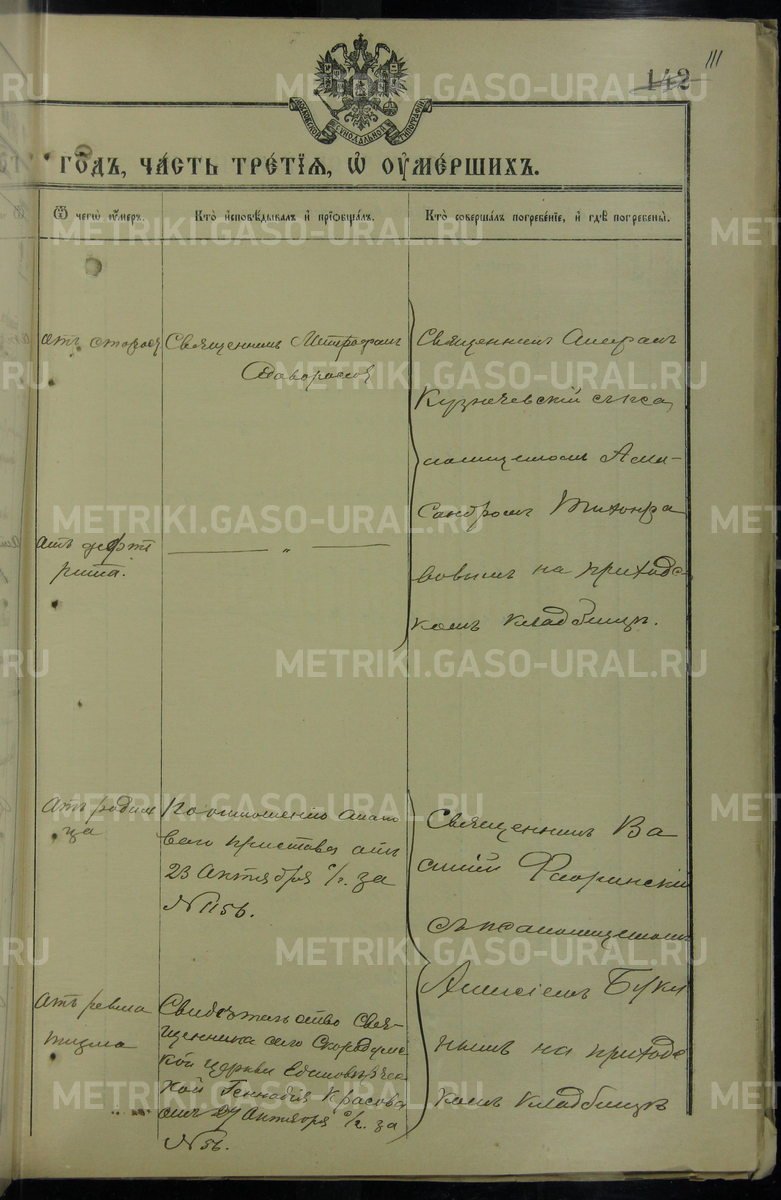 111
142
МОСКОВСКОЙ СѴНОДАЛЬНОЙ ТИПОГРАФІИ
ГОДЪ, ЧАСТЬ ТРЕТІЯ, Ѡ ОУМЕРШИХЪ.
Ѿ чегѡ оумеръ.
Кто исповѣдывалъ и пріобщалъ.
Кто совершалъ погребеніе, и гдѣ погребены.
отъ
Священникъ Митрофанъ
Священникъ
Кузнечевскій съ пса
ломщикомъ Алек-
сандромъ Тихонра
вовымъ на приходс
комъ кладбищѣ.
отъ дифте
рита.
— " —
отъ родим
ца
По отношенію стано
вого пристава отъ
23 Октября с/г. за
№ 1156.
Священникъ Ва
силій Флоринскій
съ псаломщикомъ
Алексіемъ Буки
нымъ на приходс
комъ кладбищѣ
отъ ревма
тизма
Свидѣтельство Свя-
щенника села Скородумс
кой церкви Единовѣрчес
кой Геннадія Красова
отъ 27 Октября с/г. за
№ 56.
METRIKI.GASO-URAL.RU